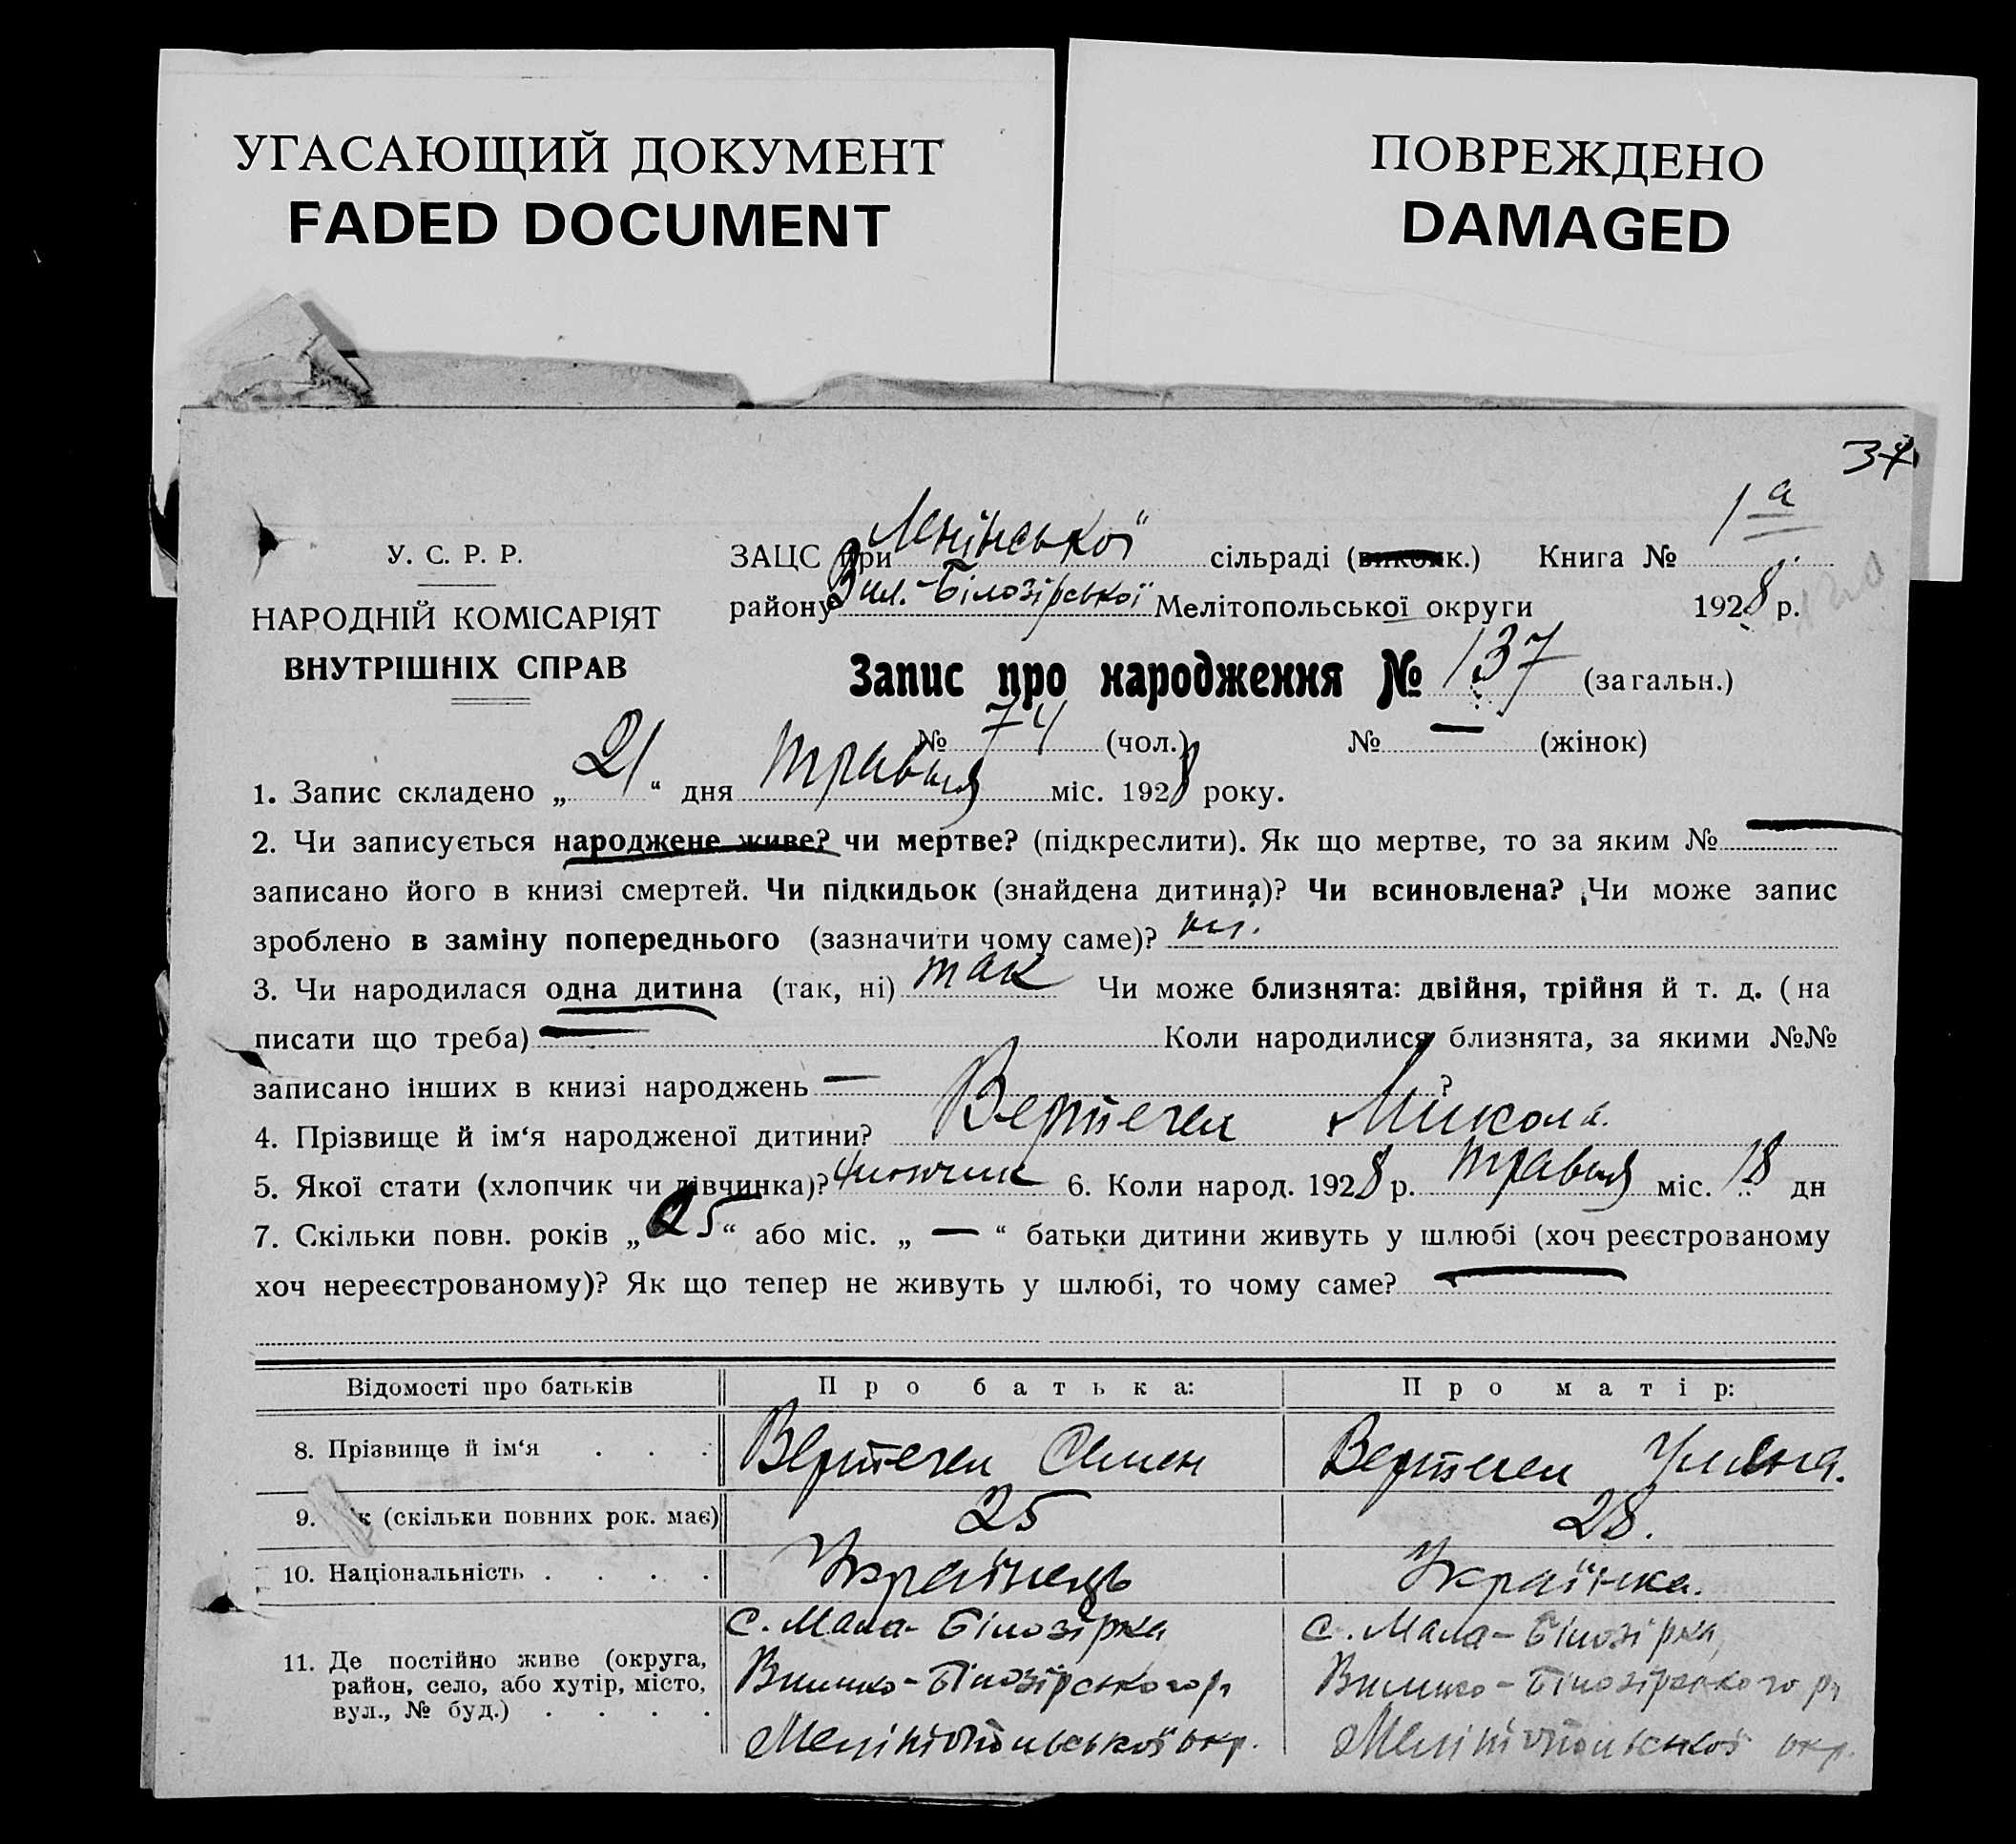 УГАСАЮЩИЙ ДОКУМЕНТ
FADED DOCUMENT
ПОВРЕЖДЕНО
DAMAGED
37
У. С. Р. Р.
НАРОДНІЙ КОМІСАРІЯТ
ВНУТРІШНІХ СПРАВ
ЗАЦС при Ленінської сільраді (виконк.) Книга № 1а
району Вел.-Білозірської Мелітопольської округи 1928 р.
Запис про народження № 137 (загальн.)
№ 74 (чол.) № — (жінок)
1. Запис складено „21“ дня травня міс. 1928 року.
2. Чи записується народжене живе? чи мертве? (підкреслити). Як що мертве, то за яким № —
записано його в книзі смертей. Чи підкидьок (знайдена дитина)? Чи всиновлена? Чи може запис
зроблено в заміну попереднього (зазначити чому саме)? ні.
3. Чи народилася одна дитина (так, ні) так Чи може близнята: двійня, трійня й т. д. (на
писати що треба) — Коли народилися близнята, за якими №№
записано інших в книзі народжень — ?
4. Прізвище й ім‘я народженої дитини? Вертегел Микола.
5. Якої стати (хлопчик чи дівчинка)? хлопчик 6. Коли народ. 1928 р. травня міс. 18 дн
7. Скільки повн. років „25“ або міс. „ — “ батьки дитини живуть у шлюбі (хоч реєстрованому
хоч нереєстрованому)? Як що тепер не живуть у шлюбі, то чому саме? —
Відомості про батьків Про батька: Про матір:
8. Прізвище й ім‘я . . . Вертегел Семен Вертегел Уляна.
9. к (скільки повних рок. має) 25 28.
10. Національність . . . . Українець Українка.
11. Де постійно живе (округа, район, село, або хутір, місто, вул., № буд.) . . . .
с. Мала-Білозірка
Велико-Білозірського р.
Мелітопольської окр.
с. Мала-Білозірка,
Велико-Білозірського р.
Мелітопольської окр.